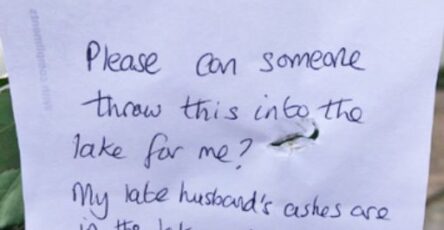 Please can someone
throw this into the
lake for me?
My late husband's ashes are
in the